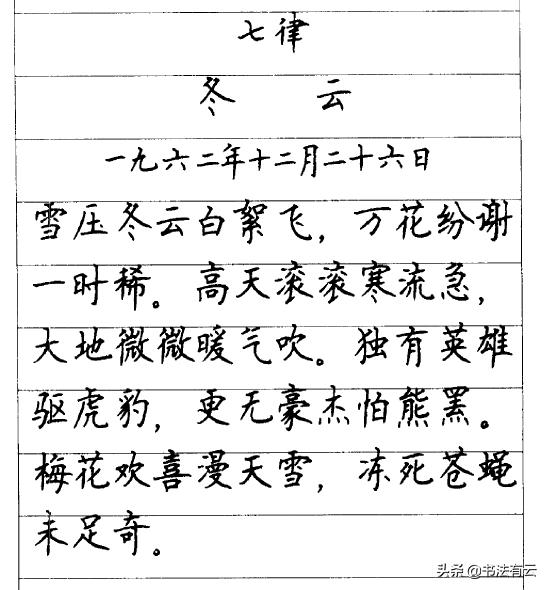 七律
冬 云
一九六二年十二月二十六日
雪压冬云白絮飞，万花纷谢
一时稀。高天滚滚寒流急，
大地微微暖气吹。独有英雄
驱虎豹，更无豪杰怕熊罴。
梅花欢喜漫天雪，冻死苍蝇
未足奇。
头条@书法有云